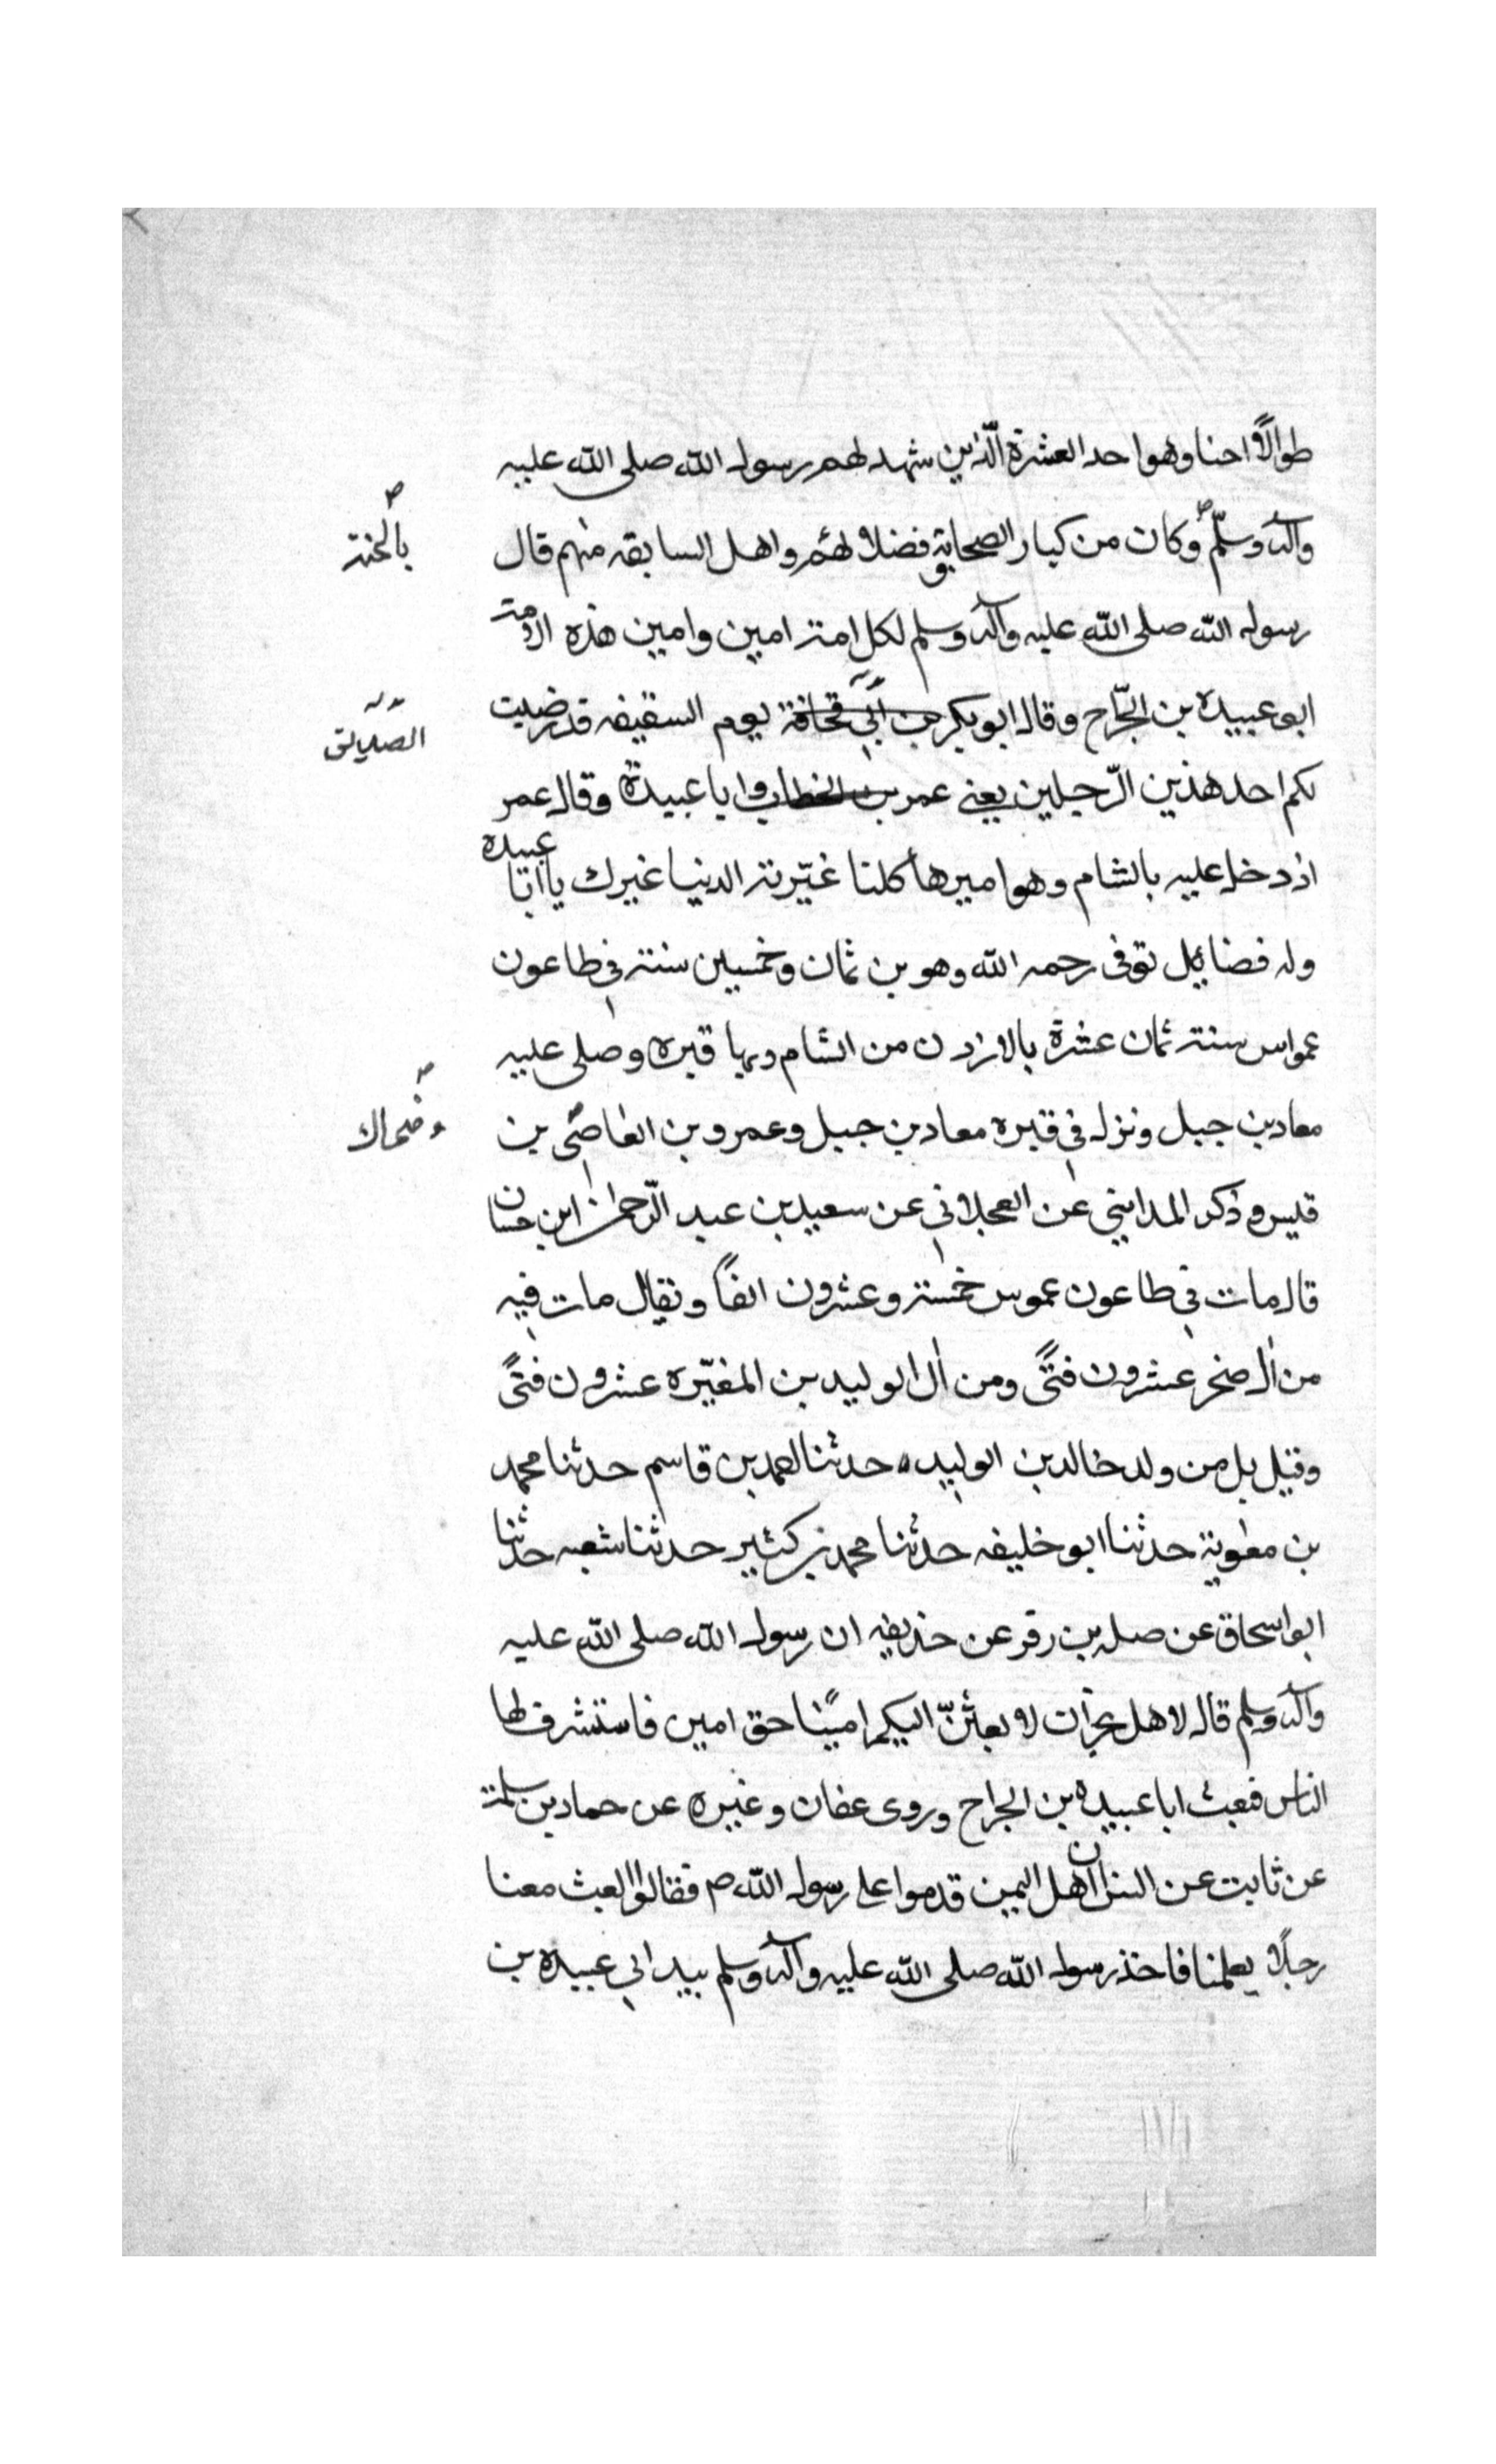 طوالاً احنا وهو احد العشرة الّذين شهد لهم رسول الله صلى الله عليه
وآله وسلّم وكان من كبار الصحابة و فضلائهم واهل السابقه منهم قال
بالجنة
رسول الله صلى الله عليه وآله وسلم لكل امة امين وامين هذه الامة
ابو عبيده بن الجّراح وقال ابو بكر بن أبي قحافة يوم السقيفه قد رضيت
الصديق
لكم احد هذين الرّجلين يعنى عمر بن الخطاب وابا عبيدة وقال عمر
اذ دخل عليه بالشام وهو اميرها كلنا غيّرته الدنيا غيرك يا ابا عبيده
وله فضائل توفى رحمه الله وهو بن ثمان وخمسين سنة في طاعون
عمواس سنة ثمان عشرة بالاردن من الشام وبها قبره وصلى عليه
معاذ بن جبل ونزل في قبره معاذ بن جبل وعمرو بن العاصى بن
وضحاك
قيس وذكر المدايني عن العجلاني عن سعيد بن عبد الرّحمن ابن حسان
قال مات في طاعون عموس خمسة وعشرون الفاً ويقال مات فيه
من اٰل صخر عشرون فتىً ومن اٰل الوليد بن المغيّره عشرون فتىً
وقيل بل من ولد خالد بن الوليد ه حدثنا احمد بن قاسم حدثنا محمد
بن معٰوية حدثنا ابو خليفه حدثنا محمد بن كثير حدثنا شعبه حدثنا
ابو اسحاق عن صله بن زفر عن حذيفه ان رسول الله صلى الله عليه
وآله وسلم قال لاهل نجران لابعثنّ اليكم اميًنا حق امين فاستشرف لها
الناس فبعث ابا عبيده بن الجراح وروى عفان وغيره عن حماد بن سلمة
عن ثابت عن انس ان اهل اليمن قدموا على رسول الله ص فقالوا ابعث معنا
رجلاً يعلمنا فاخذ رسول الله صلى الله عليه وآله وسلم بيد ابي عبيده بن